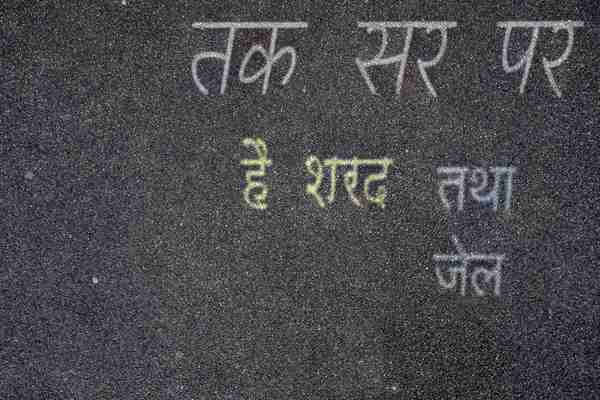 तक सर पर
है शरद तथा
जेल